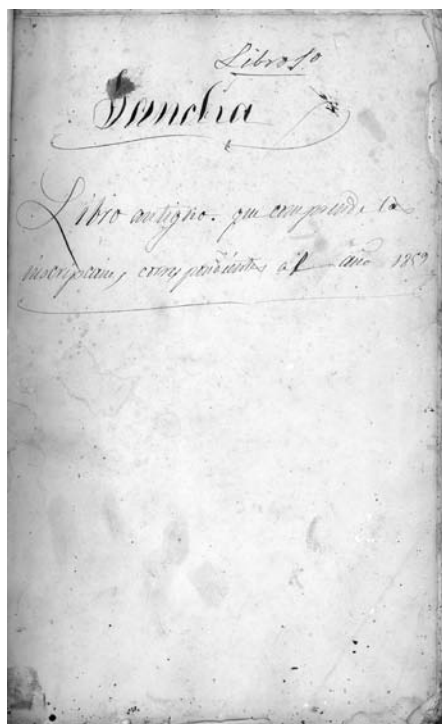 Libro 1º
Libro antiguo. que comprende las
inscripciones correspondientes al año 1859